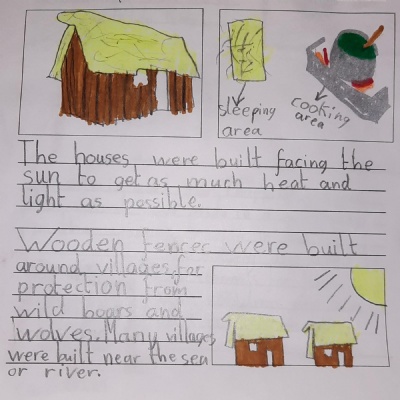 sleeping
area
cooking
area
The houses were built facing the
sun to get as much heat and
light as possible.
Wooden fences were built
around villages for
protection from
wild boars and
wolves. Many villages
were built near the sea
or river.